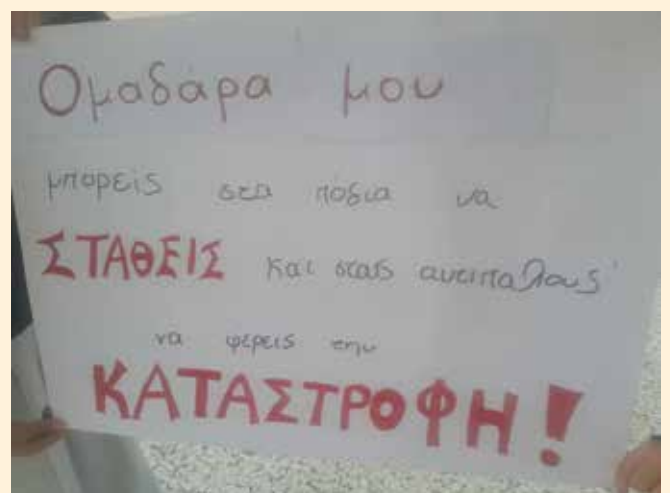 Ομαδάρα μου
μπορείς στα πόδια να
ΣΤΑΘΕΙΣ και στους αντιπάλους
να φέρεις την
ΚΑΤΑΣΤΡΟΦΗ!